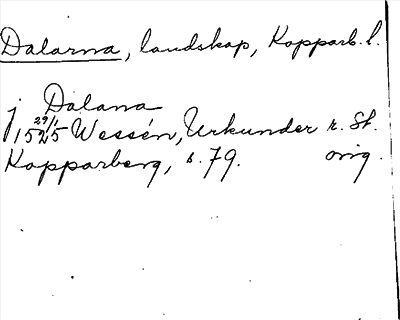 Dalarna, landskap, Kopparb. l.
j Dalana
29/1 1525 Wessén, Urkunder r. St.
Kopparberg, s. 79. orig.